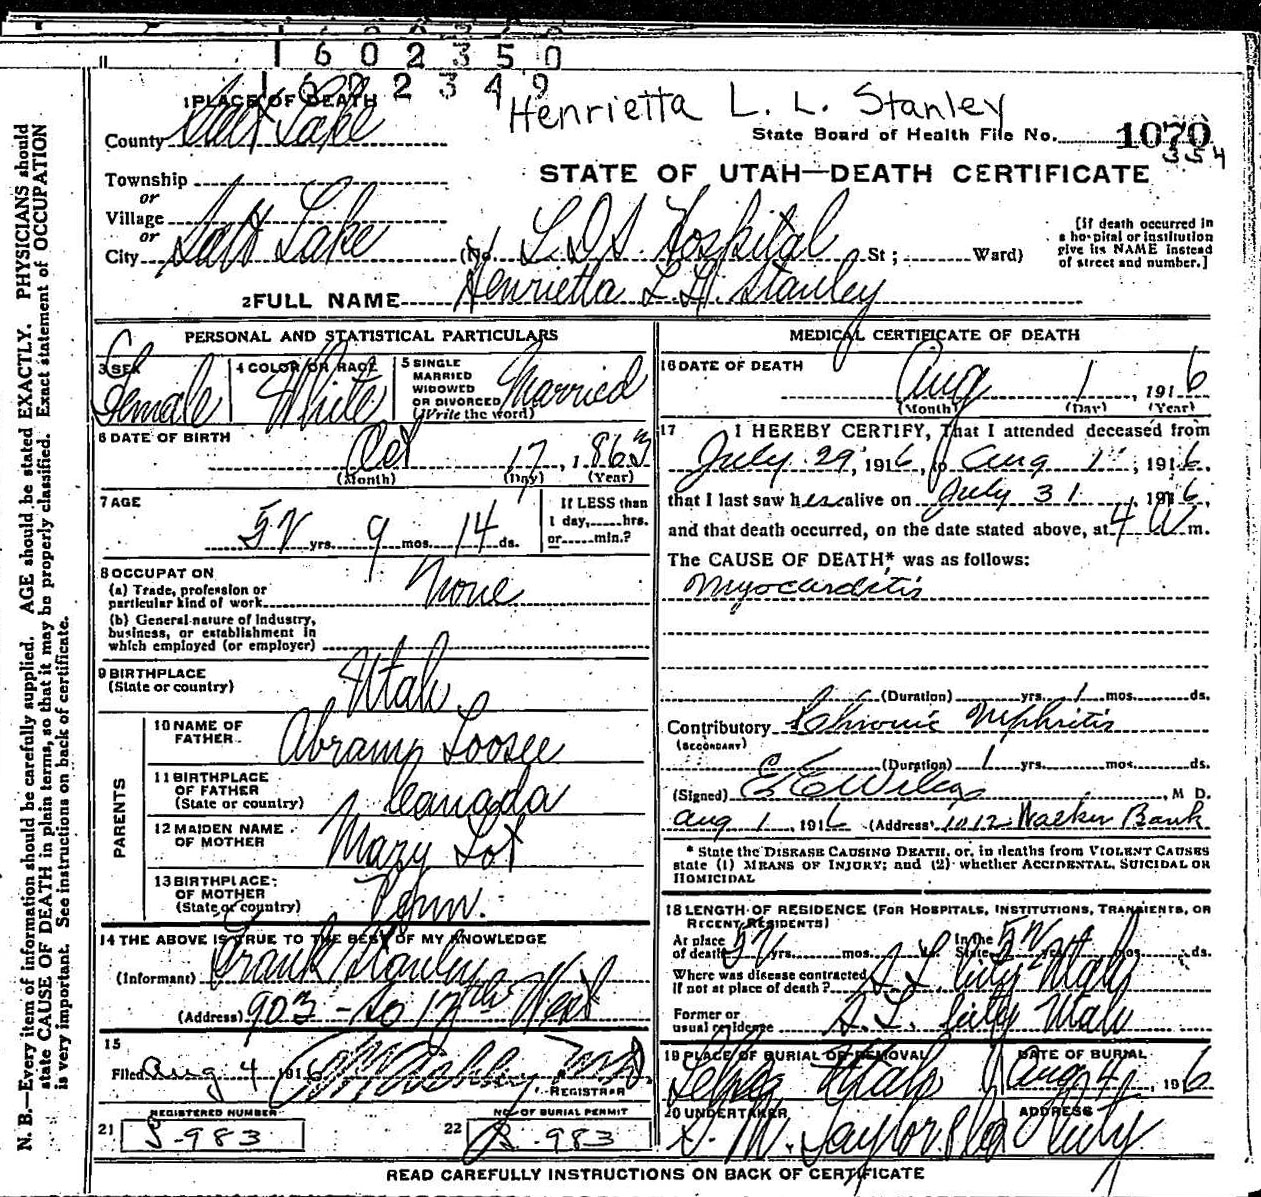 1 6 0 2 3 5 0
1 6 0 2 3 4 9
Henrietta L. L. Stanley
State Board of Health File No. 1070
354
STATE OF UTAH—DEATH CERTIFICATE
1 PLACE OF DEATH
County Salt Lake
Township
or
Village
or
City Salt Lake (No. L D S Hospital St ; Ward)
[If death occurred in
a hospital or institution
give its NAME instead
of street and number.]
2 FULL NAME Henrietta L. H. Stanley
PERSONAL AND STATISTICAL PARTICULARS
3 SEX Female
4 COLOR OR RACE White
5 SINGLE
MARRIED
WIDOWED
OR DIVORCED
(Write the word) Married
6 DATE OF BIRTH
Oct 17, 1863
(Month) (Day) (Year)
7 AGE
52 yrs. 9 mos. 14 ds.
If LESS than
1 day, hrs.
or min.?
8 OCCUPAT ON
(a) Trade, profession or
particular kind of work None
(b) General nature of Industry,
business, or establishment in
which employed (or employer)
9 BIRTHPLACE
(State or country) Utah
PARENTS
10 NAME OF
FATHER Abram Loosee
11 BIRTHPLACE
OF FATHER
(State or country) Canada
12 MAIDEN NAME
OF MOTHER Mary Lot
13 BIRTHPLACE
OF MOTHER
(State or country) Penn.
14 THE ABOVE IS TRUE TO THE BEST OF MY KNOWLEDGE
(Informant) Frank Stanley
(Address) 903 - So 12th West
15
Filed Aug 4 1916 M.D.
REGISTRAR
REGISTERED NUMBER
21 S-983
NO. OF BURIAL PERMIT
22 S-983
MEDICAL CERTIFICATE OF DEATH
16 DATE OF DEATH
Aug 1, 1916
(Month) (Day) (Year)
17 I HEREBY CERTIFY, That I attended deceased from
July 29, 1916, to Aug 1st, 1916,
that I last saw her alive on July 31 1916,
and that death occurred, on the date stated above, at 4 a m.
The CAUSE OF DEATH* was as follows:
Myocarditis
(Duration) yrs. 1 mos. ds.
Contributory Chronic Nephritis
(SECONDARY)
(Duration) 1 yrs. mos. ds.
(Signed) E E Wilcox, M D.
Aug 1, 1916 (Address) 1012 Walker Bank
* State the DISEASE CAUSING DEATH, or, in deaths from VIOLENT CAUSES
state (1) MEANS OF INJURY; and (2) whether ACCIDENTAL, SUICIDAL OR
HOMICIDAL
18 LENGTH OF RESIDENCE (FOR HOSPITALS, INSTITUTIONS, TRANSIENTS, OR
RECENT RESIDENTS)
At place
of death 52 yrs. mos. ds. In the
State 52 yrs. mos. ds.
Where was disease contracted
If not at place of death? S L City Utah
Former or
usual residence S. L. City Utah
19 PLACE OF BURIAL OR REMOVAL
Lehi Utah
DATE OF BURIAL
Aug 4, 1916
20 UNDERTAKER
S. M. Taylor & Co
ADDRESS
City
READ CAREFULLY INSTRUCTIONS ON BACK OF CERTIFICATE
N. B.—Every item of information should be carefully supplied. AGE should be stated EXACTLY. PHYSICIANS should
state CAUSE OF DEATH in plain terms, so that it may be properly classified. Exact statement of OCCUPATION
is very important. See instructions on back of certificate.